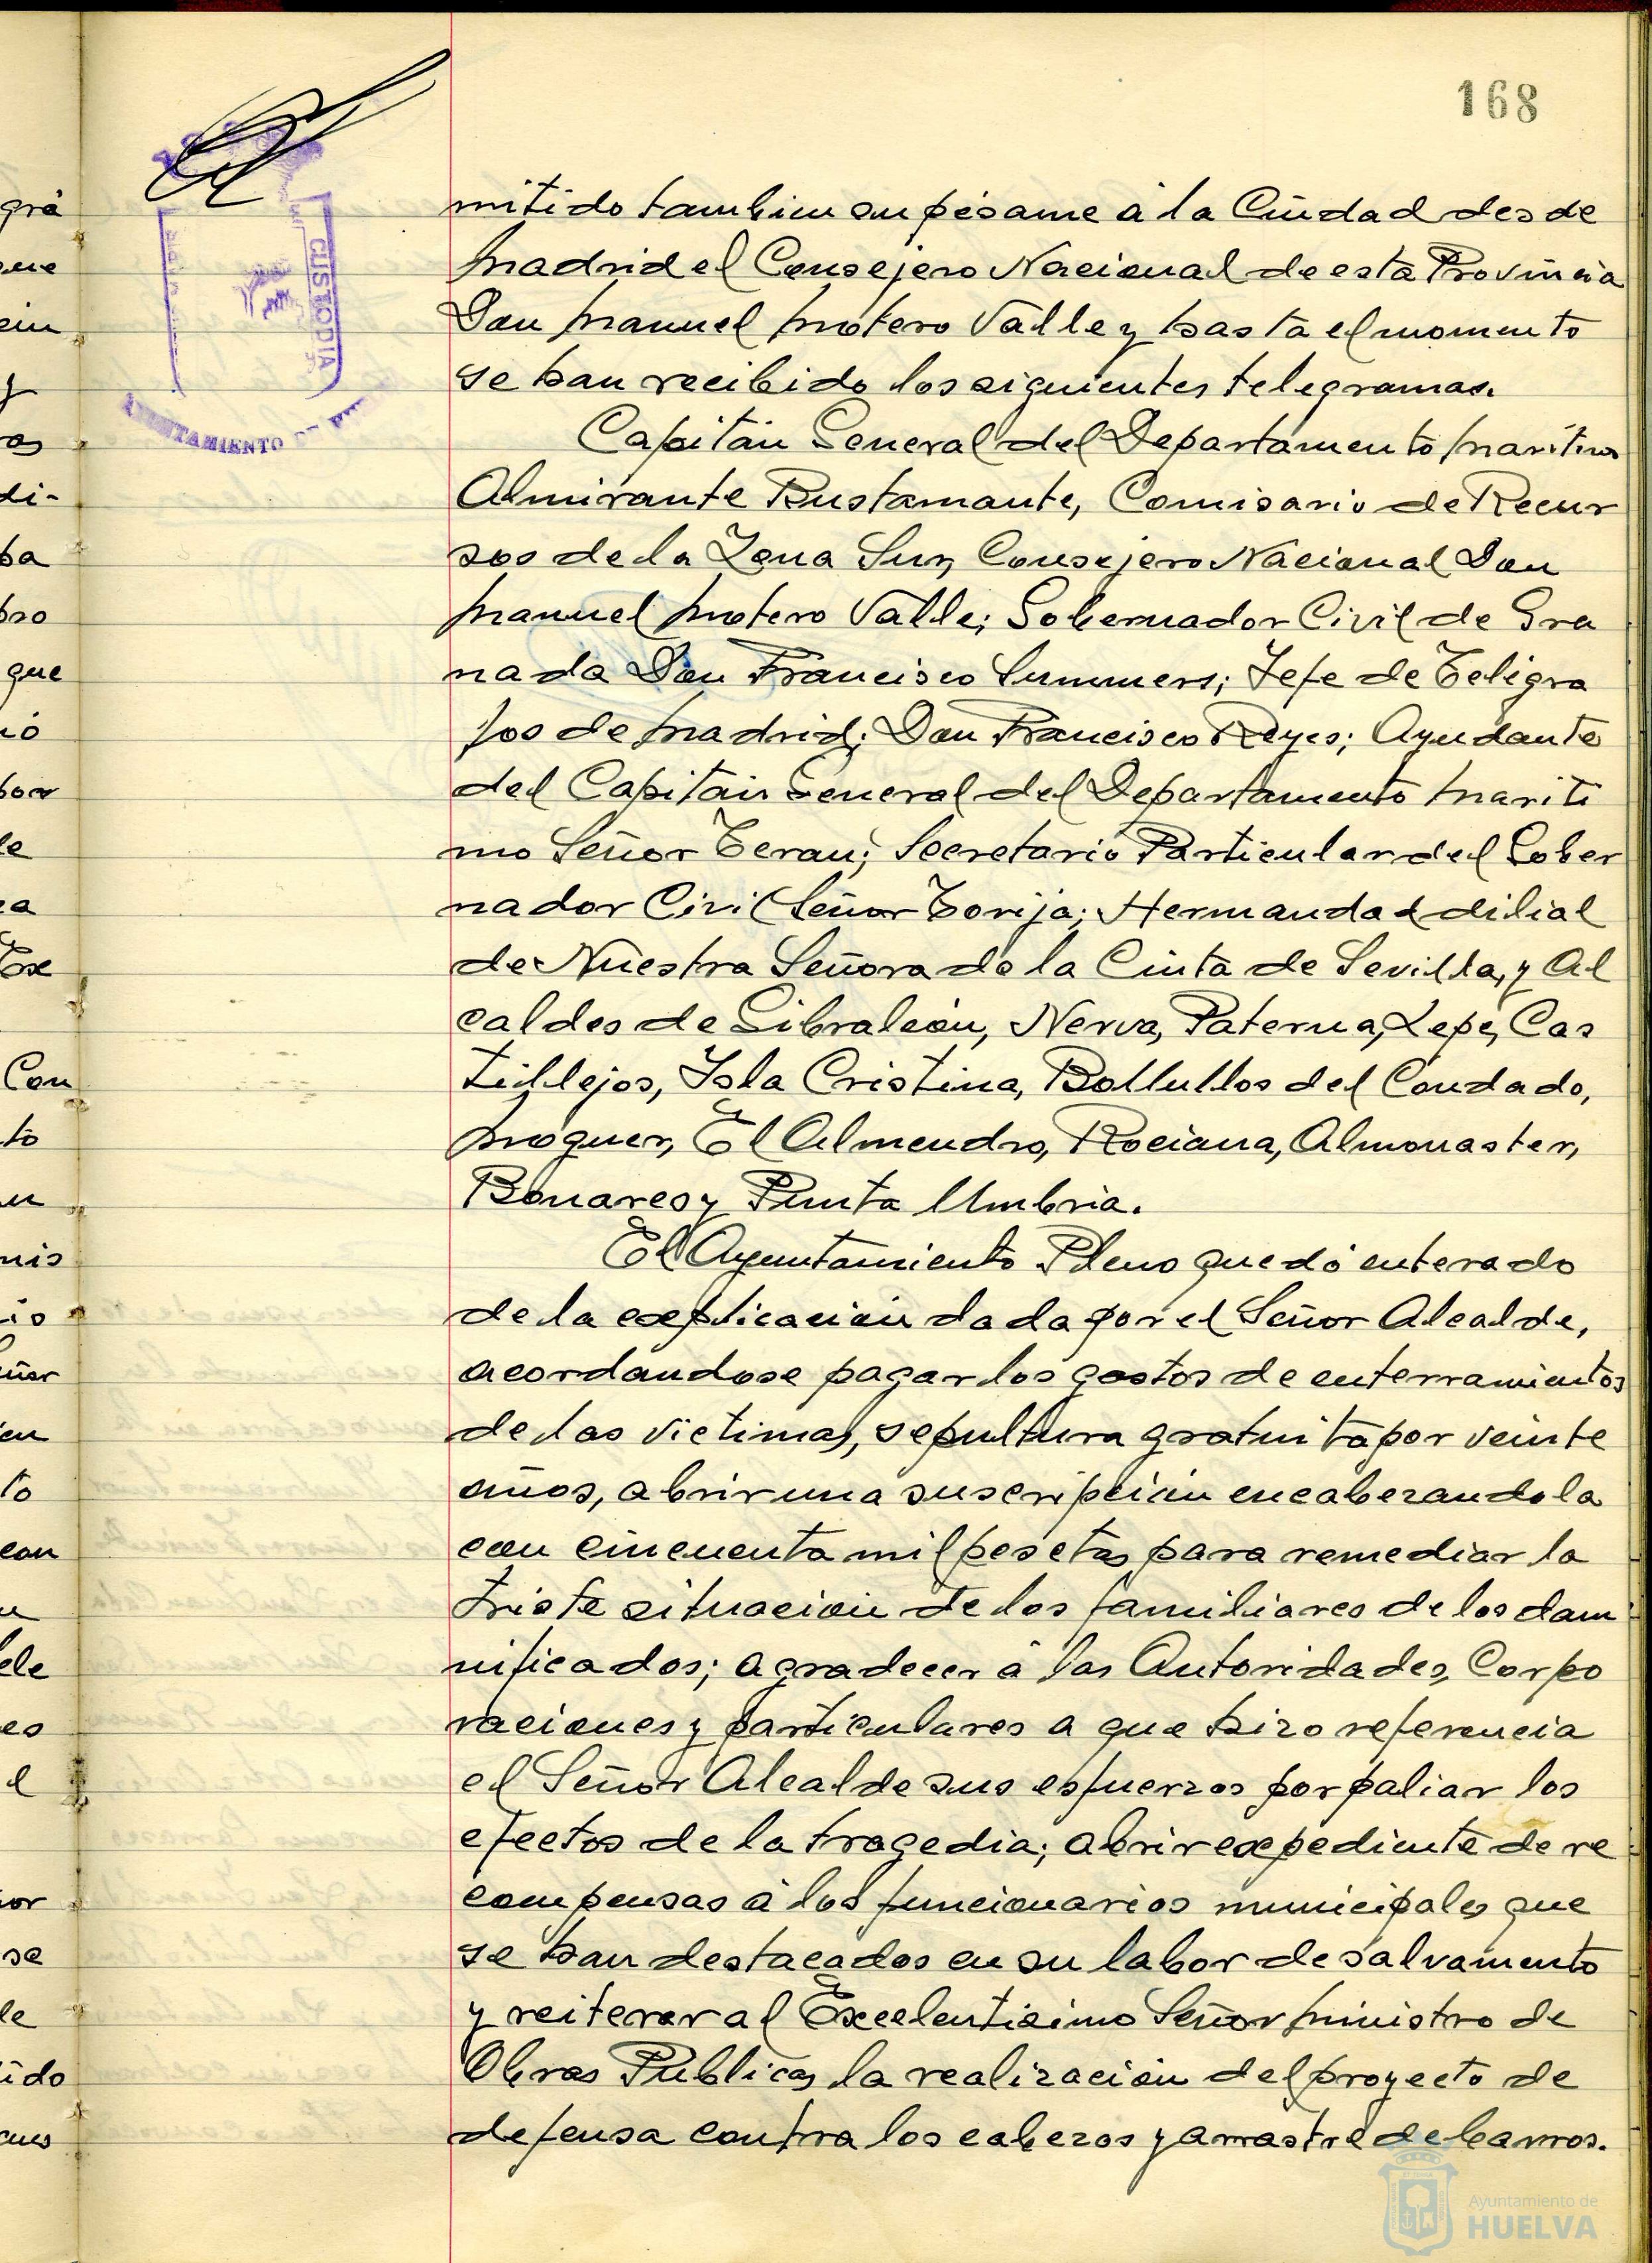 168
mitido tambien su pésame a la Ciudad desde
Madrid el Consejero Nacional de esta Provincia
Don Manuel Motero Valle y hasta el momento
se han recibido los siguientes telegramas.
Capitán General del Departamento Maritimo
Almirante Bustamante, Comisario de Recur
sos de la Zona Sur, Consejero Nacional Don
Manuel Motero Valle; Gobernador Civil de Gra
nada Don Francisco Summers; Jefe de Teligra
fos de Madrid; Don Francisco Reyes; Ayudante
del Capitán General del Departamento Mariti
mo Señor Teran; Secretario Particular del Gober
nador Civil Señor Torija; Hermandad dilial
de Nuestra Señora de la Cinta de Sevilla, y Al
caldes de Gibraleón, Nerva, Paterna, Lepe, Cas
tillejos, Isla Cristina, Bollullos del Condado,
Moguer, El Almendro, Rociana, Almonaster,
Bonares y Punta Umbria.
El Ayuntamiento Pleno quedó enterado
de la explicación dada por el Señor Alcalde,
acordandose pagar los gastos de enterramientos
de las victimas, sepultura gratuita por veinte
años, abrir una suscripción encabezandola
con cincuenta mil pesetas para remediar la
triste situación de los familiares de los dam
nificados; agradecer a las Autoridades, Corpo
raciones y particulares a que hizo referencia
el Señor Alcalde sus esfuerzos por paliar los
efectos de la tragedia; abrir expediente de re
compensas a los funcionarios municipales que
se han destacados en su labor de salvamento
y reiterar al Excelentisimo Señor Ministro de
Obras Públicas la realización del proyecto de
defensa contra los cabezos y arrastre de barros.
CUSTODIA
gra
di-
que
Con
to
se
Ayuntamiento de
HUELVA